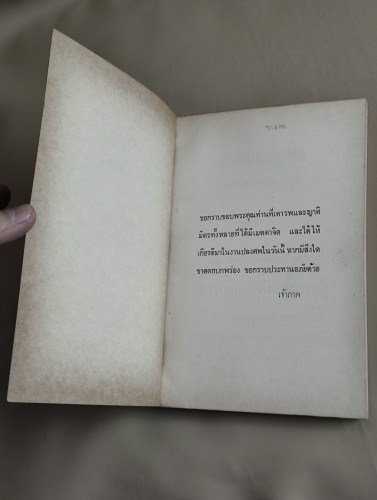 ขอกราบขอบพระคุณท่านที่เคารพและญาติ
มิตรทั้งหลายที่ได้มีเมตตาจิต และได้ให้
เกียรติมาในงานปลงศพในวันนี้ หากมีสิ่งใด
ขาดตกบกพร่อง ขอกราบประทานอภัยด้วย
เจ้าภาพ